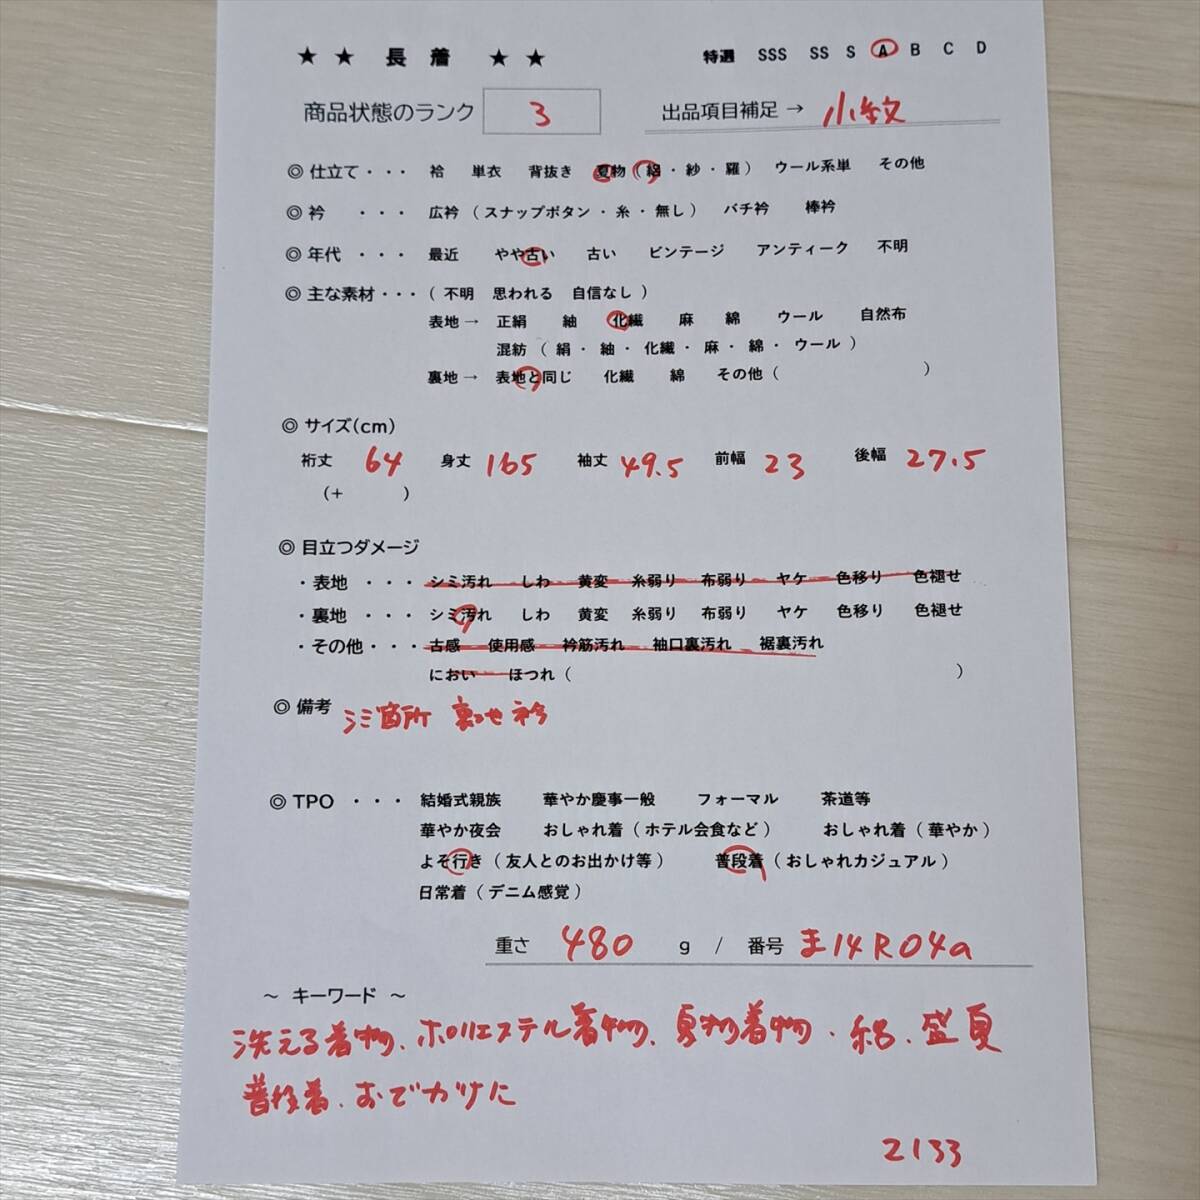 ★ ★ 長 着 ★ ★ 特選 SSS SS S A B C D
商品状態のランク 3 出品項目補足 → 小紋
◎ 仕立て ・・・ 袷 単衣 背抜き 夏物 ( 絽 ・ 紗 ・ 羅 ) ウール系単 その他
◎ 衿 ・・・ 広衿 ( スナップボタン ・ 糸 ・ 無し ) バチ衿 棒衿
◎ 年代 ・・・ 最近 やや古い 古い ビンテージ アンティーク 不明
◎ 主な素材 ・・・ ( 不明 思われる 自信なし )
表地 → 正絹 紬 化繊 麻 綿 ウール 自然布
混紡 ( 絹 ・ 紬 ・ 化繊 ・ 麻 ・ 綿 ・ ウール )
裏地 → 表地と同じ 化繊 綿 その他 ( )
◎ サイズ(cm)
裄丈 64 身丈 165 袖丈 49.5 前幅 23 後幅 27.5
(+ )
◎ 目立つダメージ
・表地 ・・・ シミ汚れ しわ 黄変 糸弱り 布弱り ヤケ 色移り 色褪せ
・裏地 ・・・ シミ汚れ しわ 黄変 糸弱り 布弱り ヤケ 色移り 色褪せ
・その他 ・・・ 古感 使用感 衿筋汚れ 袖口裏汚れ 裾裏汚れ
におい ほつれ ( )
◎ 備考 シミ箇所 裏の衿
◎ TPO ・・・ 結婚式親族 華やか慶事一般 フォーマル 茶道等
華やか夜会 おしゃれ着 ( ホテル会食など ) おしゃれ着 ( 華やか )
よそ行き ( 友人とのお出かけ等 ) 普段着 ( おしゃれカジュアル )
日常着 ( デニム感覚 )
重さ 480 g / 番号 ま14R04a
～ キーワード ～
洗える着物、ポリエステル着物、夏物着物、絽、盛夏
普段着、おでかけに
2133